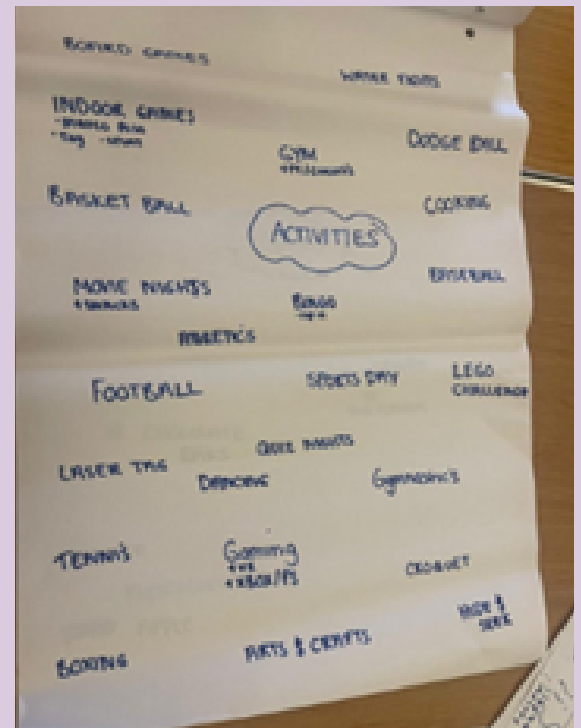 BOARD GAMES
WATER FIGHTS
INDOOR GAMES
GYM
DODGE BALL
BASKET BALL
COOKING
ACTIVITIES
BASEBALL
MOVIE NIGHTS
+ SNACKS
BINGO
ATHLETIC'S
FOOTBALL
SPORTS DAY
LEGO
CHALLENGE
QUIZ NIGHTS
LASER TAG
DANCING
Gymnastic's
TENNIS
Gaming
+ VR
+ XBOX/PS
CROQUET
HIDE &
SEEK
BOXING
ARTS & CRAFTS